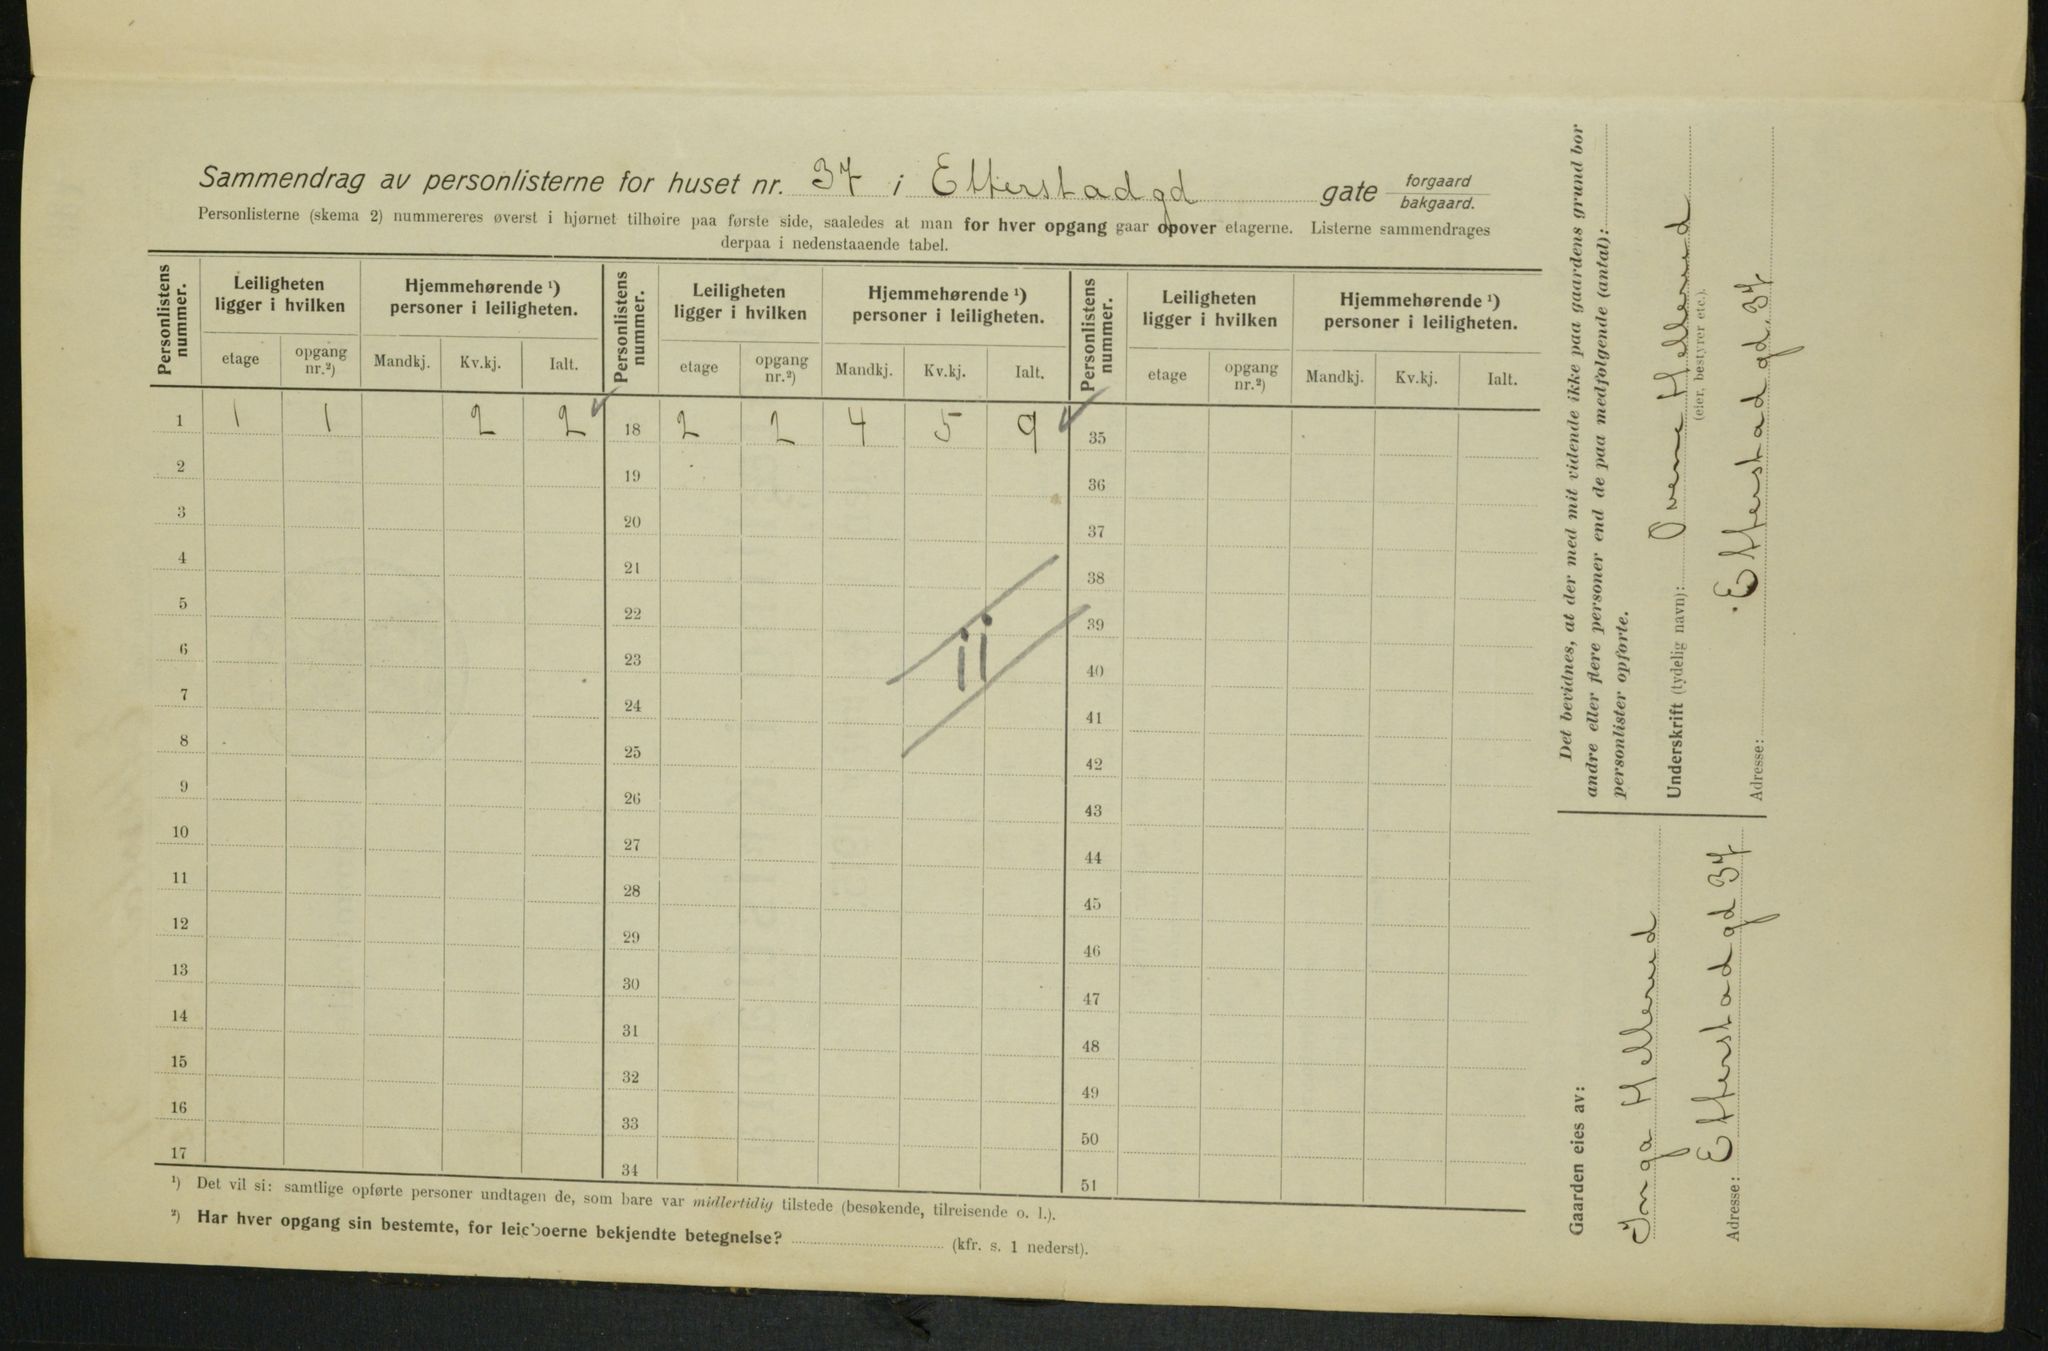 Sammendrag av personlisterne for huset nr. 37 i Etterstadgd gate forgaard bakgaard.
Personlisterne (skema 2) nummereres øverst i hjørnet tilhøire paa første side, saaledes at man for hver opgang gaar opover etagerne. Listerne sammendrages
derpaa i nedenstaaende tabel.
Personlistens nummer. Leiligheten ligger i hvilken Hjemmehørende ¹) personer i leiligheten. Personlistens nummer. Leiligheten ligger i hvilken Hjemmehørende ¹) personer i leiligheten. Personlistens nummer. Leiligheten ligger i hvilken Hjemmehørende ¹) personer i leiligheten.
etage opgang nr.²) Mandkj. Kv.kj. Ialt. etage opgang nr.²) Mandkj. Kv.kj. Ialt. etage opgang nr.²) Mandkj. Kv.kj. Ialt.
1 1 1 2 2 18 2 2 4 5 9 35
2 19 36
3 20 37
4 21 38
5 22 39
6 23 40
7 24 41
8 25 42
9 26 43
10 27 44
11 28 45
12 29 46
13 30 47
14 31 48
15 32 49
16 33 50
17 34 51
11
¹) Det vil si: samtlige opførte personer undtagen de, som bare var midlertidig tilstede (besøkende, tilreisende o. l.).
²) Har hver opgang sin bestemte, for leieboerne bekjendte betegnelse? (kfr. s. 1 nederst).
Det bevidnes, at der med mit vidende ikke paa gaardens grund bor
andre eller flere personer end de paa medfølgende (antal):
personlister opførte.
Underskrift (tydelig navn): Hellerud
(eier, bestyrer etc.).
Adresse: Etterstadgd. 37
Gaarden eies av:
Inga Hellerud
Adresse: Etterstadgd 37